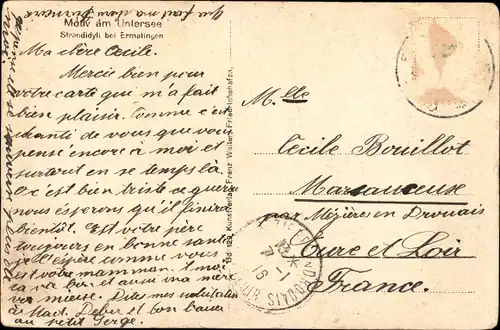 Motiv am Untersee
Strandidyll bei Ermatingen
Ma chère Cecile.
Mercie bien pour
votre carte que m'a fait
bien plaisir. Comme c'est
chanti de vous que vous
pensé encore à moi et
surtout en se temps là.
O c'est bien triste ce guerre
nous esperons qu'il finira
bientôt. Est votre père
toujours en bonne santé
je l'espère comme vous
est votre mamman. A moi
ca va bon et aussi ma mère
va mieuse. Dites mes salutations
à Mad. Debu et bon baiser
au petit Serge.
que font ma chère
Bd. 122 Kunstverlag Franz Weller, Friedrichshafen.
Mlle
Cecile Bouillot
Marsauceuse
par Mézières en Drouais
Eure et Loir
France.
MEZIERES-EN-DROUAIS
EURE-ET-LOIR